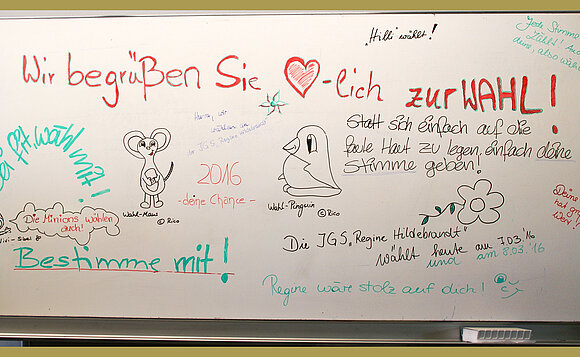 "Hilli wählt!
Jede Stimme
zählt!
deine, also
Wir begrüßen Sie ♥-lich zur WAHL!
wählen
JGS „Regine Hildebrandt"
Statt sich einfach auf die
faule Haut zu legen, einfach deine
Stimme geben!
wähl mit!
2016
-deine Chance-
Wahl-Maus ©Rico
Wahl-Pinguin ©Rico
Die Minions wählen
auch!
Bestimme mit!
Die JGS „Regine Hildebrandt"
wählt heute am 7.03.'16
und am 8.03.'16
Regine wäre stolz auf dich!
Deine
hat
Wert